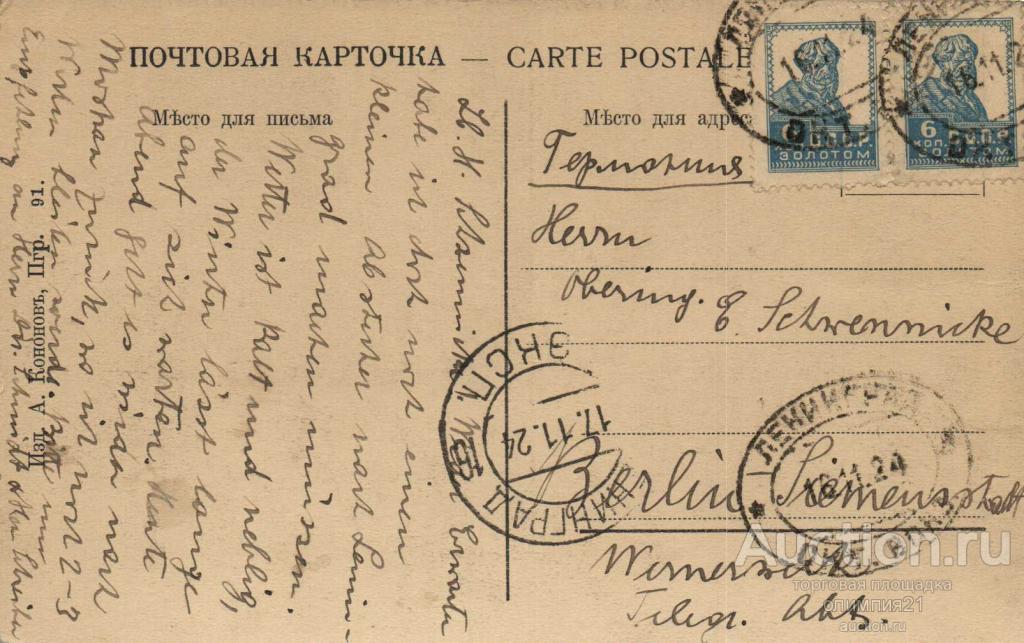 ПОЧТОВАЯ КАРТОЧКА — CARTE POSTALE
Мѣсто для письма
Мѣсто для адреса
Изд. А. Кононовъ, Пгр. 91.
Германия
Herrn
Obering. E Schwennicke
Berlin Siemensstadt
Wernerwerk
Telegr. Abt.
habe ich doch noch einen
kleinen Abstecher nach Lenin-
grad machen müssen.
Wetter ist kalt und neblig,
der Winter lässt lange
auf sich warten. Heute
Abend geht es wieder nach
Moskau zurück, wo ich noch 2-3
Wochen bleiben werde. Bitte um
Empfehlung an Herrn
6 КОП. С.С.С.Р.
ЗОЛОТОМ
С.С.С.Р.
ЗОЛОТОМ
16.11.24
ЛЕНИНГРАД
16.11.24
ЛЕНИНГРАД
ЭКСП.
17.11.24
Auction.ru
торговая площадка
олимпия21
auction.ru